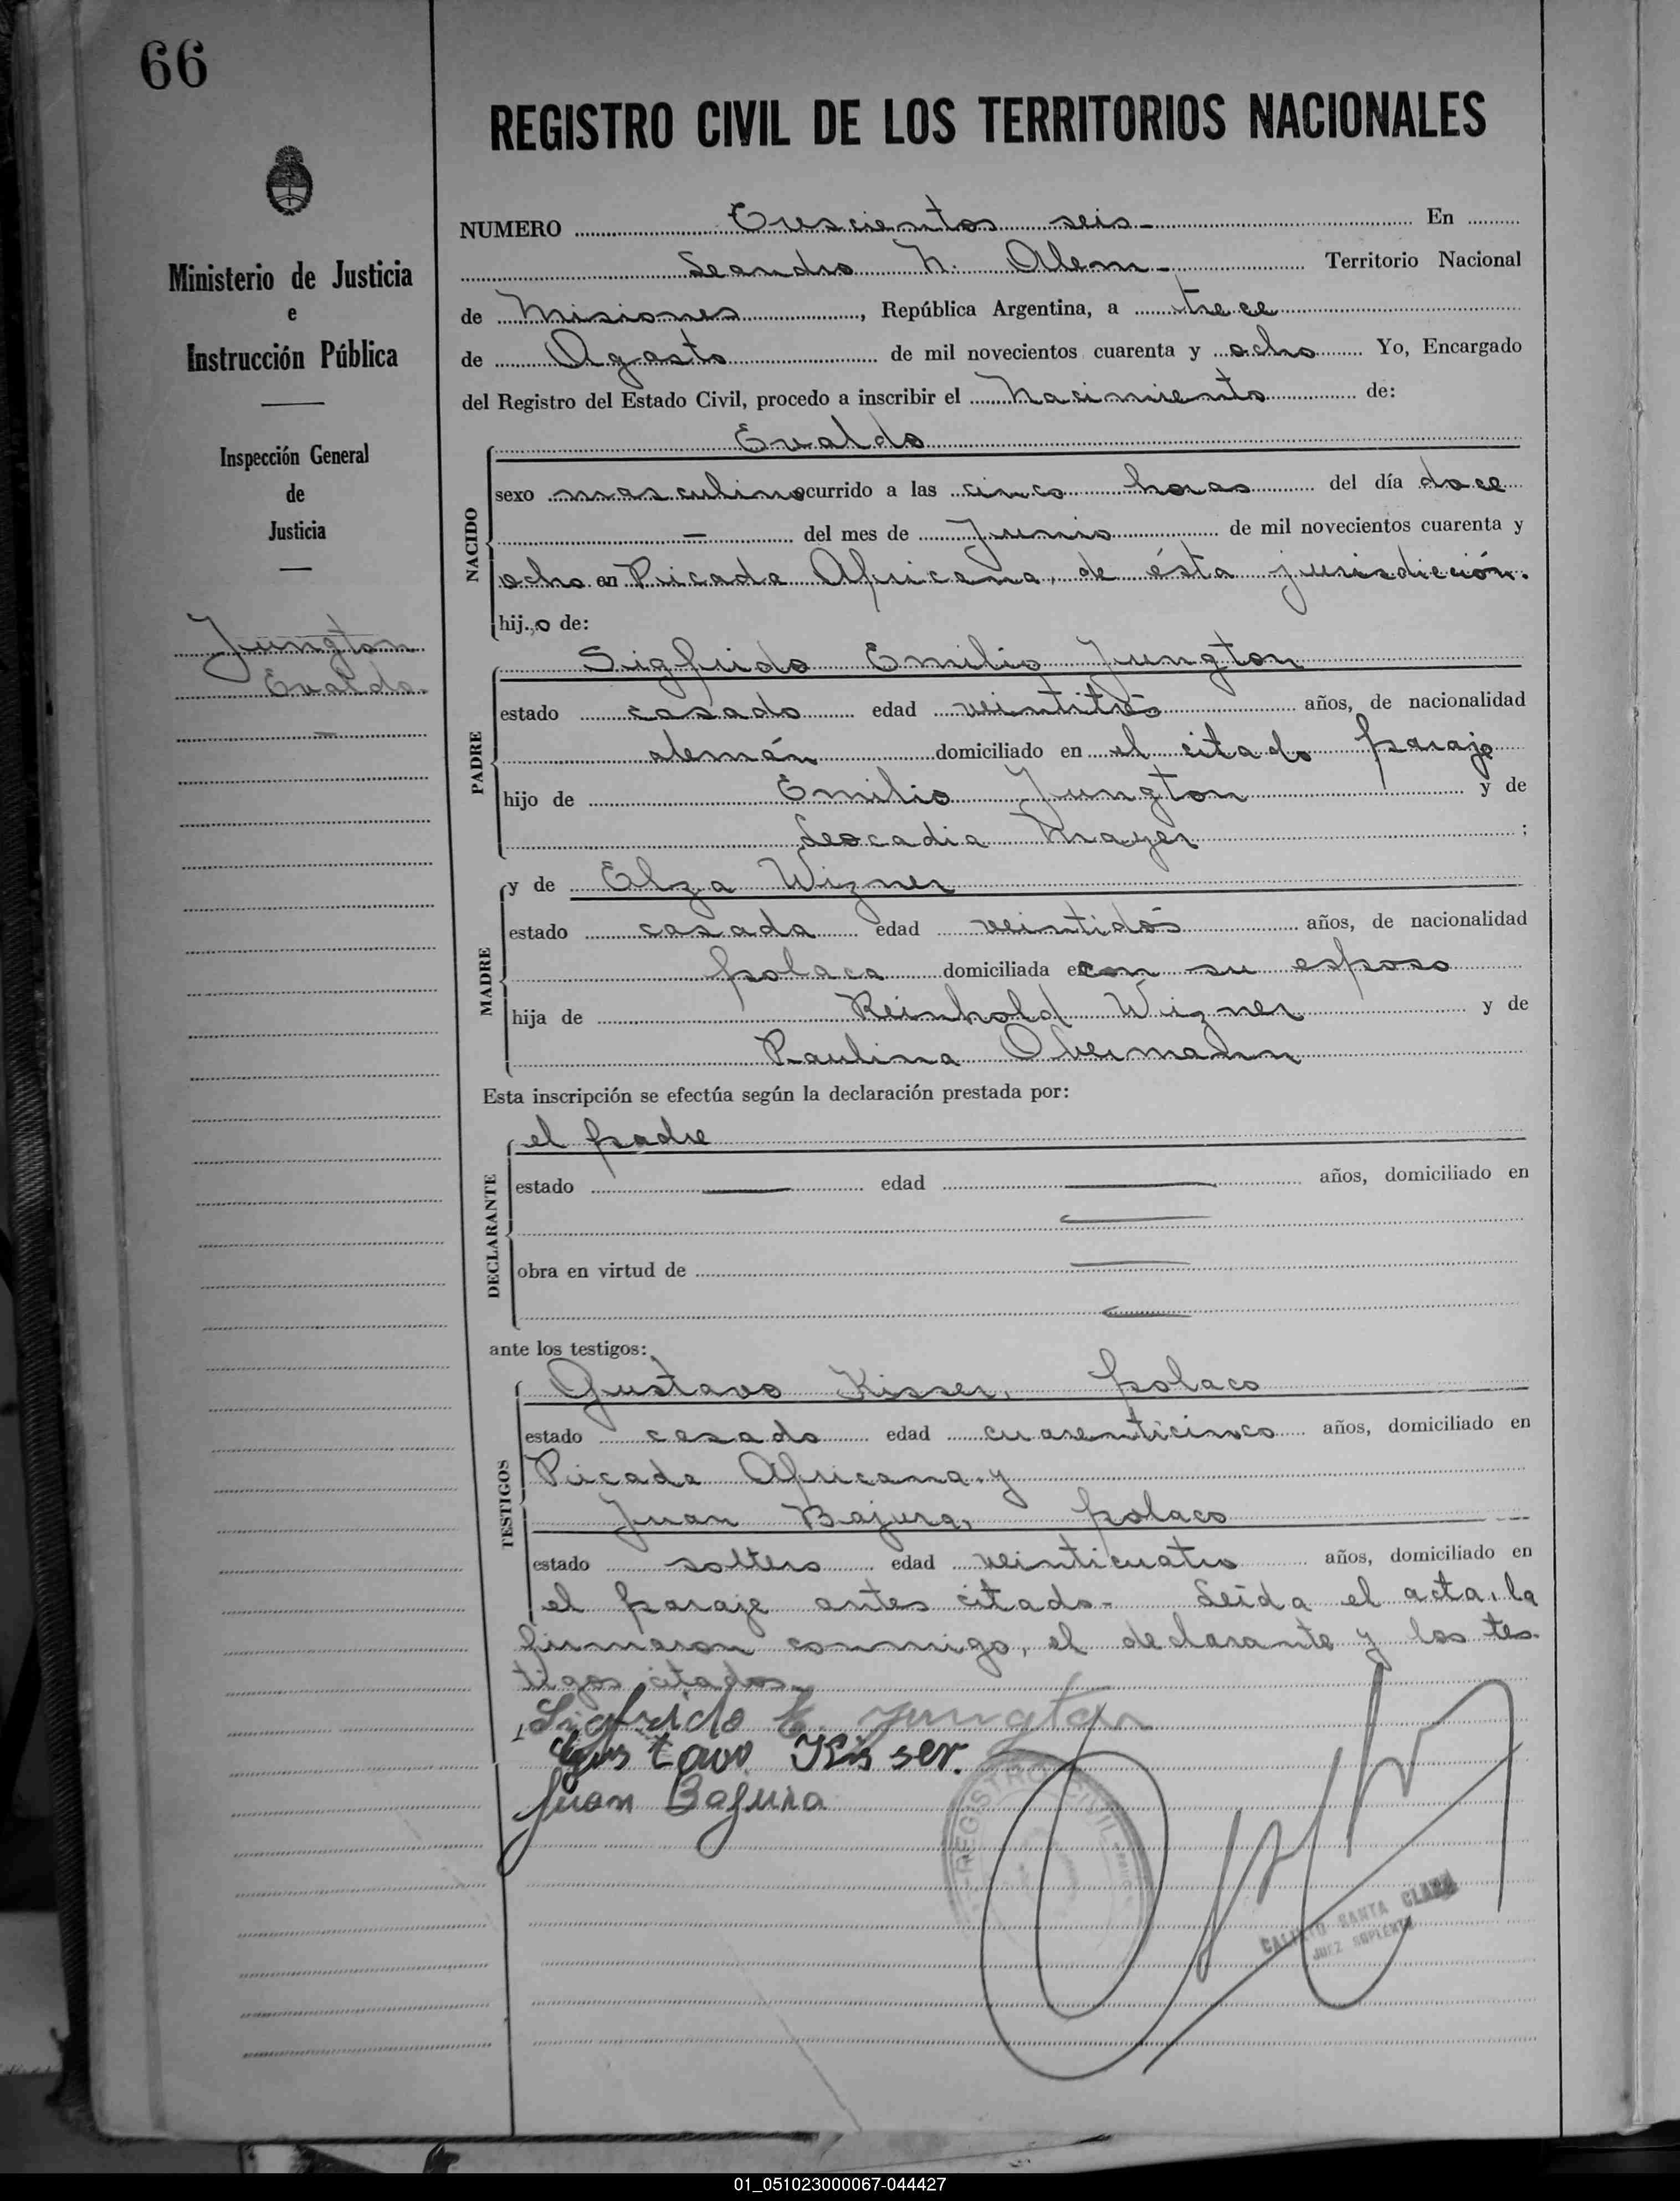 66
REGISTRO CIVIL DE LOS TERRITORIOS NACIONALES
Ministerio de Justicia
e
Instrucción Pública
Inspección General
de
Justicia
Jungton
Evaldo
NUMERO Trescientos seis - En
Leandro N. Alem - Territorio Nacional
de Misiones, República Argentina, a trece
de Agosto de mil novecientos cuarenta y ocho Yo, Encargado
del Registro del Estado Civil, procedo a inscribir el Nacimiento de:
NACIDO
Evaldo
sexo masculino ocurrido a las cinco horas del día doce
- del mes de Junio de mil novecientos cuarenta y
ocho en Picada Africana, de ésta jurisdicción.
hij..o de:
PADRE
Sigfrido Emilio Jungton
estado casado edad veintitrés años, de nacionalidad
alemán domiciliado en el citado paraje
hijo de Emilio Jungton y de
Leocadia Mayer ;
MADRE
y de Elza Wizner
estado casada edad veintidós años, de nacionalidad
polaca domiciliada en con su esposo
hija de Reinhold Wizner y de
Paulina Obermann
Esta inscripción se efectúa según la declaración prestada por:
DECLARANTE
el padre
estado — edad — años, domiciliado en
obra en virtud de
ante los testigos:
TESTIGOS
Gustavo Kisser, polaco
estado casado edad cuarenticinco años, domiciliado en
Picada Africana, y
Juan Bajura, polaco
estado soltero edad veinticuatro años, domiciliado en
el paraje antes citado - Leída el acta, la
firmaron conmigo, el declarante y los tes-
tigos citados -
Sigfrido E. Jungton
Gustavo Kisser.
Juan Bajura
REGISTRO CIVIL
CALIXTO SANTA CLARA
JUEZ SUPLENTE
01_051023000067-044427